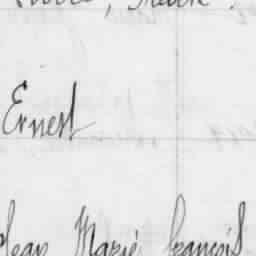 Ernest
Jean Marie françois